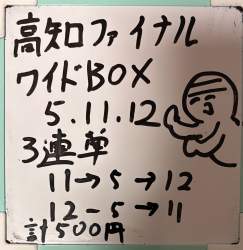 高知ファイナル
ワイドBOX
5.11.12
3連単
11→5→12
12-5→11
計500円